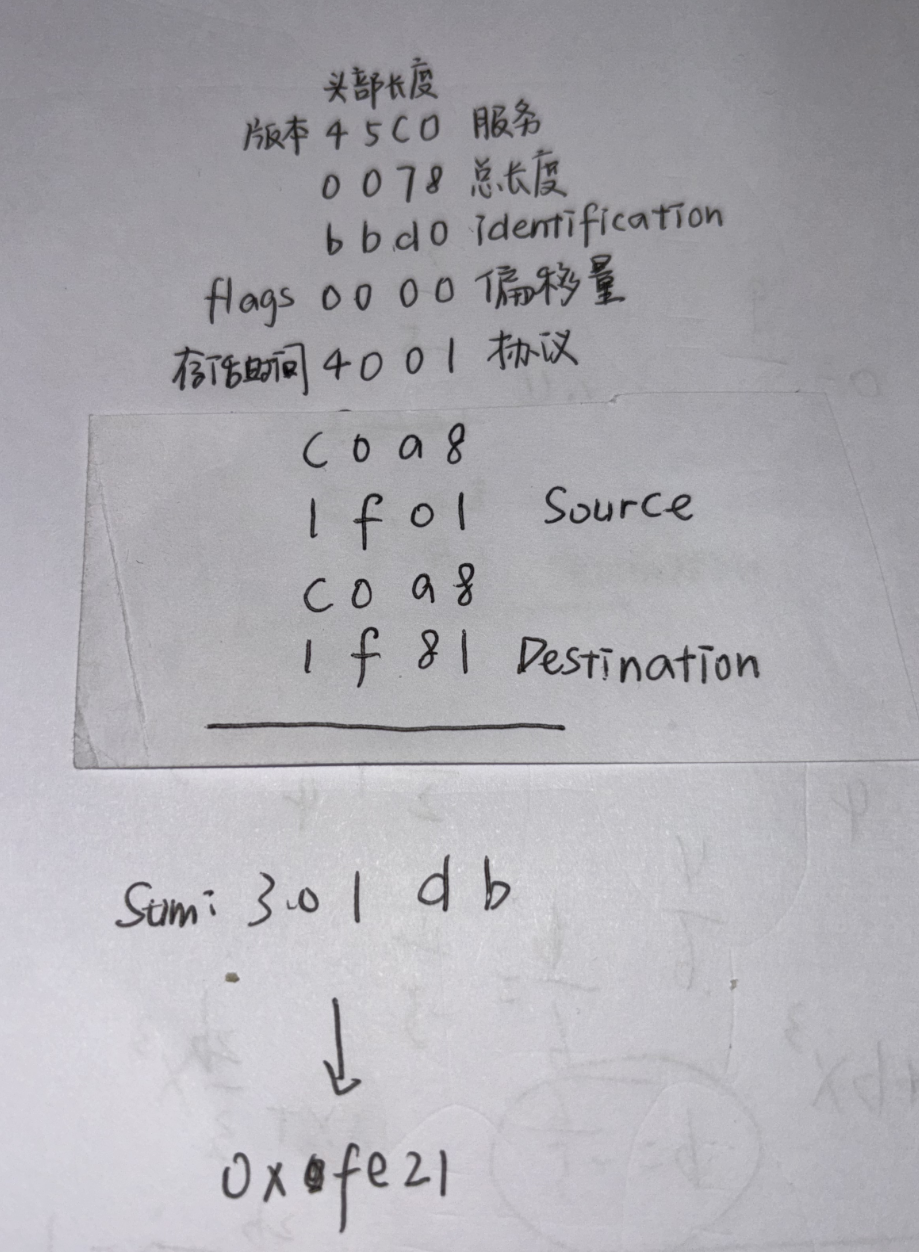 头部长度
版本 45C0 服务
0078 总长度
bbd0 identification
flags 0000 偏移量
存活时间 4001 协议
C0a8
1f01 Source
C0a8
1f81 Destination
Sum: 301db
↓
0xfe21